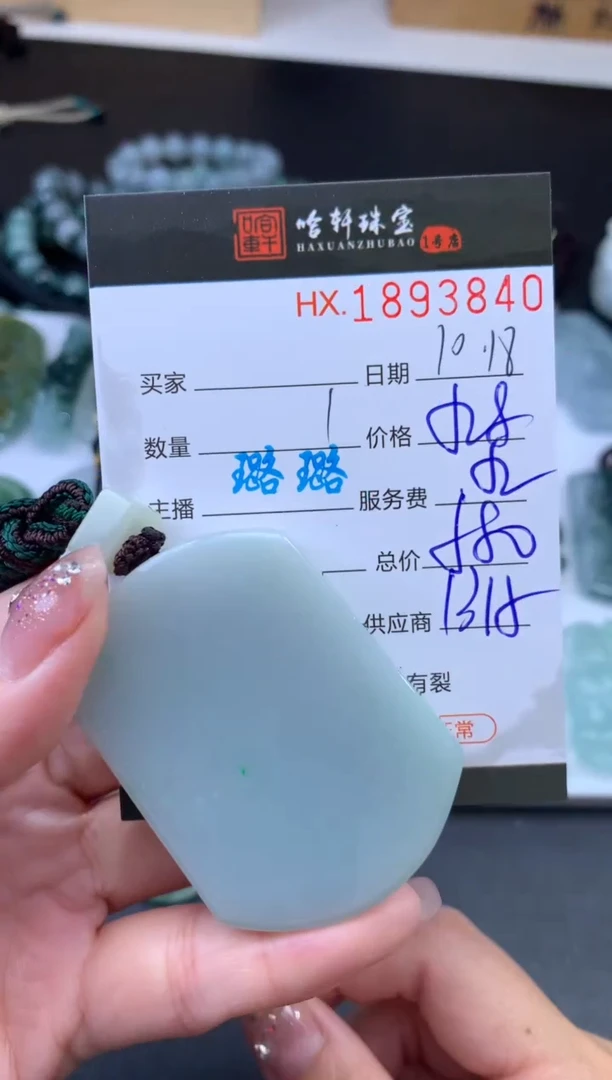 哈轩 哈轩珠宝
HAXUANZHUBAO 1号店
HX.1893840
买家 日期 10.18
数量 1 价格
主播 璐璐 服务费
总价
供应商
有裂
常